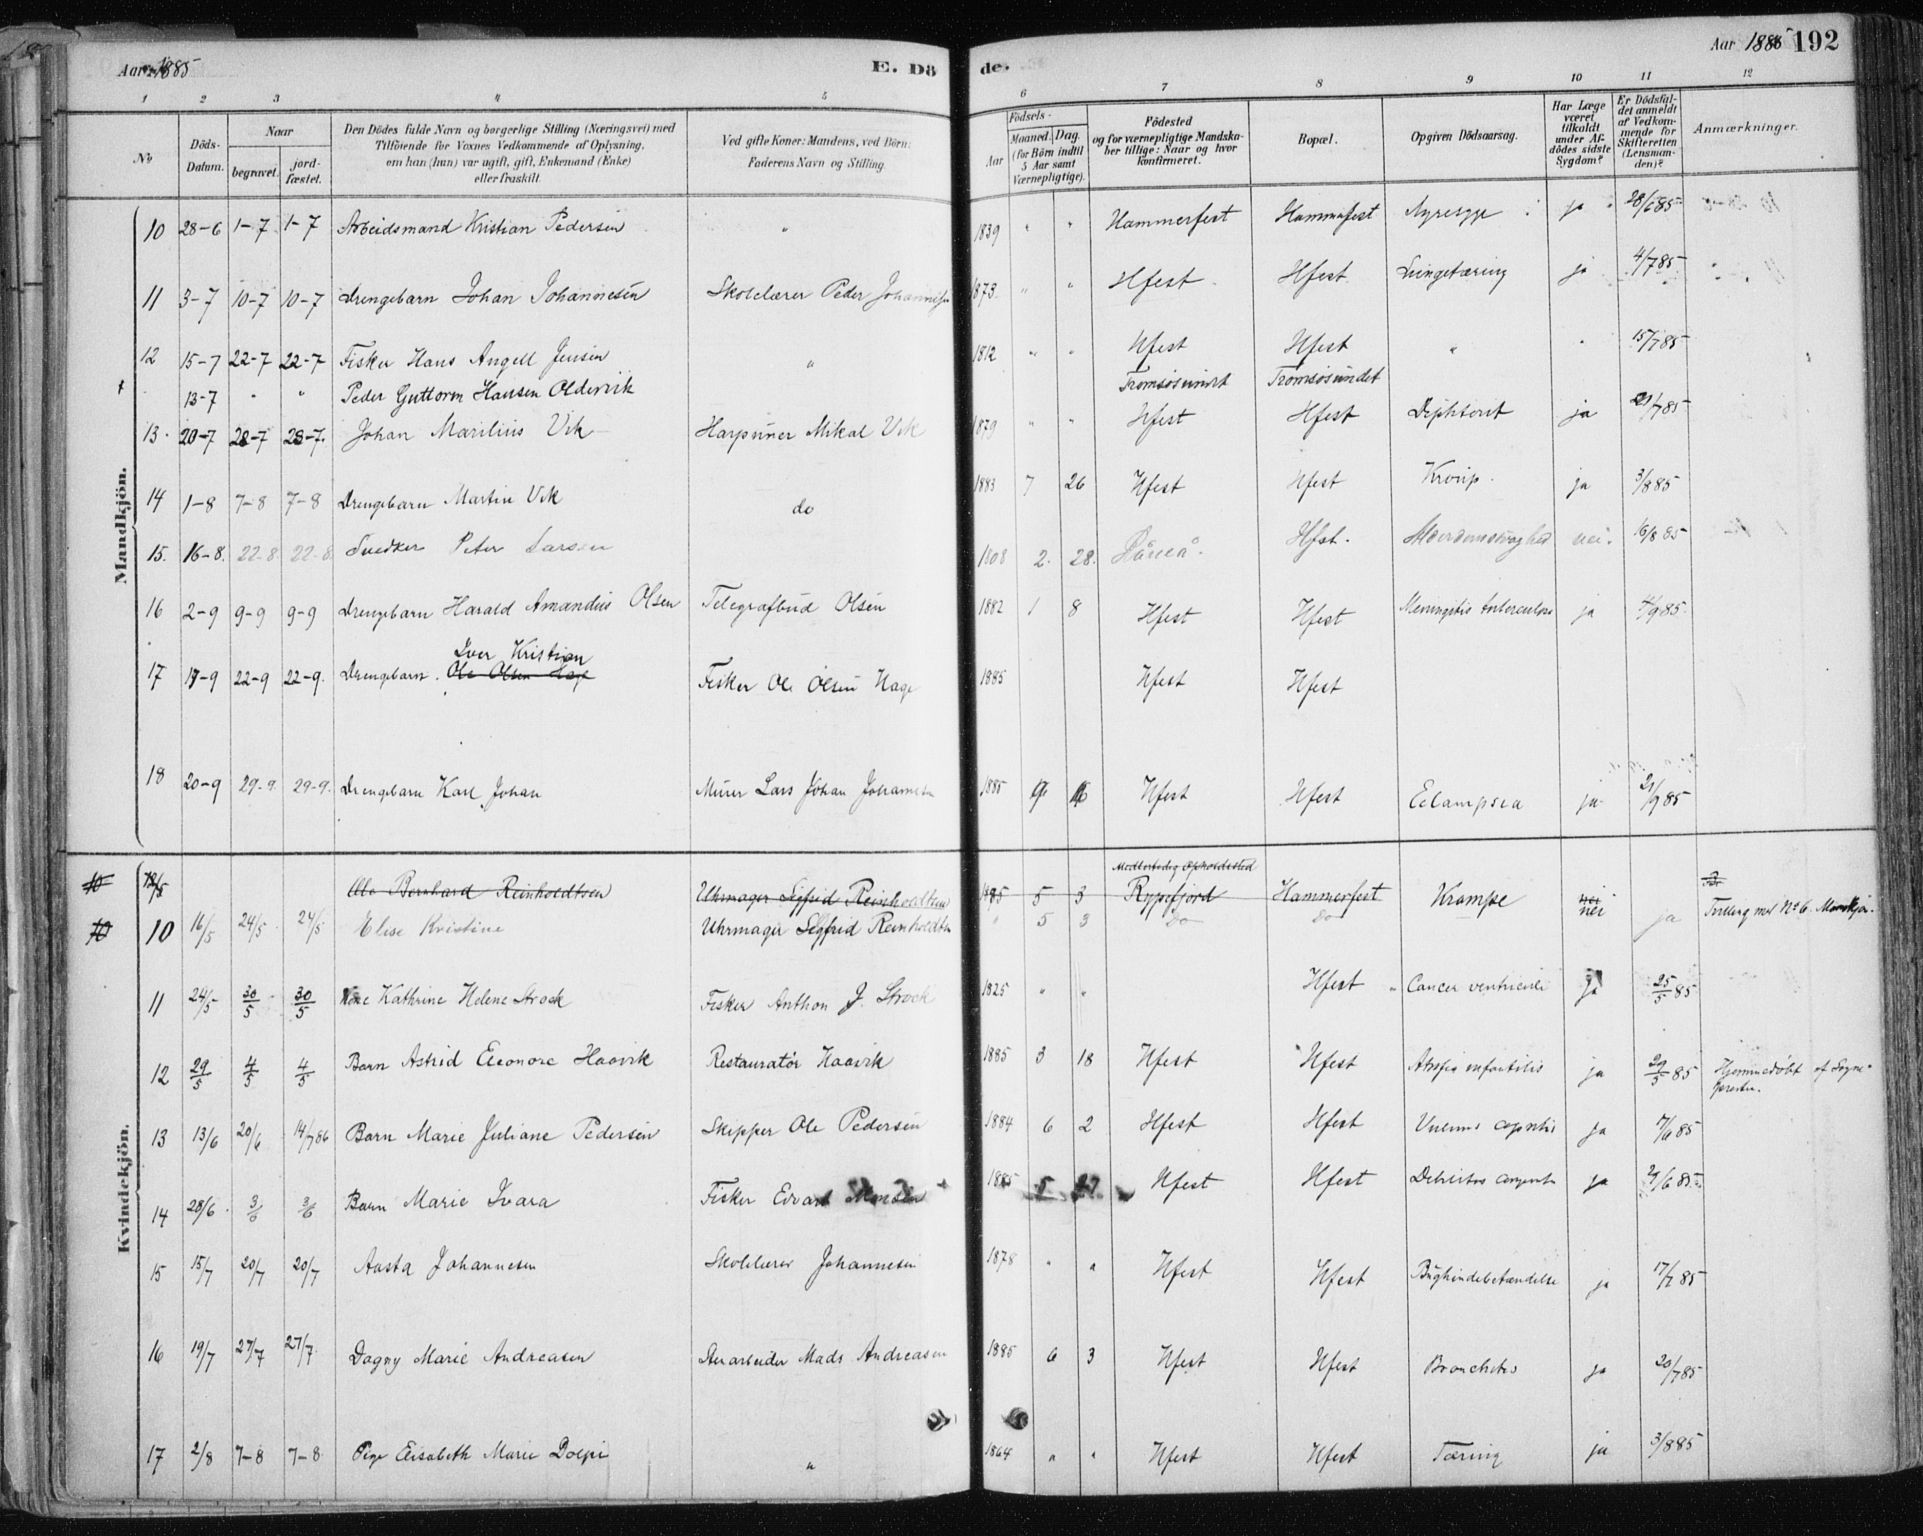 Aar 1885 E. Dö de. Aar 1885 192
1 2 3 4 5 6 7 8 9 10 11 12
No
Döds-Datum.
Naar
begravet. jordfæstet.
Den Dödes fulde Navn og borgerlige Stilling (Næringsvei) med Tilföiende for Voxnes Vedkommende af Oplysning, om han (hun) var ugift, gift, Enkemand (Enke) eller fraskilt.
Ved gifte Koner: Mandens, ved Börn: Faderens Navn og Stilling.
Födsels-
Aar Maaned. Dag. (for Börn indtil 5 Aar samt Værnepligtige).
Födested og for værnepligtige Mandskaber tillige: Naar og hvor konfirmeret.
Bopæl.
Opgiven Dödsaarsag.
Har Læge været tilkaldt under Afdödes sidste Sygdom?
Er Dödsfaldet anmeldt af Vedkommende for Skifteretten (Lensmanden)?
Anmærkninger.
Mandkjön.
10 28-6 1-7 1-7 Arbeidsmand Kristian Pedersen " 1839 " " Hammerfest Hammerfest Nyresyge ja 28/6 85
11 3-7 10-7 10-7 Drengebarn Johan Johannesen Skolelærer Peder Johannesen 1873 " " Hfest Hfest Lungetæring ja 4/7 85
12 15-7 22-7 22-7 Fisker Hans Angell Jensen " 1812 " " Hfest Hfest " " 15/7 85
13-7 " " Peder Guttorm Hansen Oldervik Tromsösundet Tromsösundet
13 20-7 28-7 28-7 Johan Marilius Vik Harpuner Mikal Vik 1879 " " Hfest Hfest Diphterit ja 21/7 85
14 1-8 7-8 7-8 Drengebarn Martin Vik do 1883 7 26 Hfest Hfest Kroup ja 3/8 85
15 16-8 22-8 22-8 Snedker Peter Larsen 1808 2 28 Hfst. Alderdomssvaghed nei 16/8 85
16 2-9 9-9 9-9 Drengebarn Harald Amandus Olsen Telegrafbud Olsen 1882 1 8 Hfest Hfest Meningitis tuberculosa ja 4/9 85
Iver Kristian
17 17-9 22-9 22-9 Drengebarn Ole Olsen Hage Fisker Ole Olsen Hage 1885 Hfest Hfest
18 20-9 29-9 29-9 Drengebarn Karl Johan Murer Lars Johan Johannesen 1885 Hfest Hfest Eclampsia ja 21/9 85
Kvindekjön.
Midlertidig Opholdssted
10 Ole Bernhard Reinholdtsen Uhrmager Sigfrid Reinholdtsen 1885 5 3 Rypefjord Hammerfest Krampe nei
10 10 16/5 24/5 24/5 Elise Kristine Uhrmager Sigfrid Reinholdtsen " 5 3 Do Do nei ja Tvilling med No 6. Mandkjön.
11 24/5 30/5 30/5 Kone Kathrine Helene Strock Fisker Anthon J. Strock 1825 " " Hfest Cancer ventriculi ja 25/5 85
12 29/5 4/5 4/5 Barn Astrid Eleonore Haavik Restauratör Haavik 1885 3 18 Hfest Hfest Atrofia infantilis ja 29/5 85 Hjemmedöbt af Sognepresten.
13 13/6 20/6 14/7 86 Barn Marie Juliane Pedersen Skipper Ole Pedersen 1884 6 2 Hfest Hfest ja 85
14 28/6 3/6 3/6 Barn Marie Ivara Fisker Edvard Monsen 1885 5 27 Hfest Hfest Debilitas congenita ja 29/6 85
15 15/7 20/7 20/7 Aasta Johannesen Skolelærer Johannesen 1878 " " Hfest Hfest Bughindebetændelse ja 17/7 85
16 19/7 27/7 27/7 Dagny Marie Andreasen Mads Andreasen 1885 6 3 Hfest Hfest Bronchitis ja 20/7 85
17 2/8 7-8 7-8 Pige Elisabeth Marie Dolpi " 1864 " " Hfest Hfest Tæring ja 3/8 85